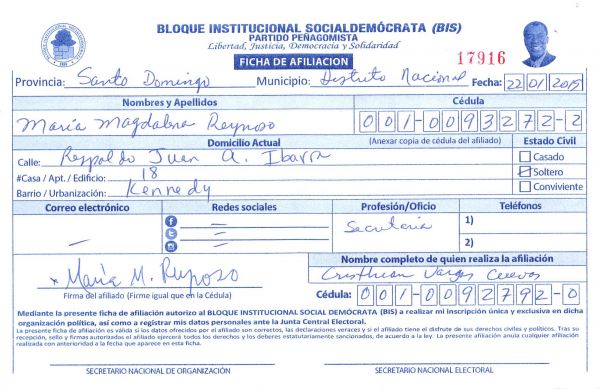 BLOQUE INSTITUCIONAL SOCIALDEMÓCRATA (BIS)
PARTIDO PEÑAGOMISTA
Libertad, Justicia, Democracia y Solidaridad
FICHA DE AFILIACION
17916
Provincia: Santo Domingo Municipio: Distrito Nacional Fecha: 22/01/2015
Nombres y Apellidos Cédula
María Magdalena Reynoso 001-0093272-2
Domicilio Actual (Anexar copia de cédula del afiliado) Estado Civil
Calle: Respaldo Juan A. Ibarra Casado
#Casa / Apt. / Edificio: 18 Soltero
Barrio / Urbanización: Kennedy Conviviente
Correo electrónico Redes sociales Profesión/Oficio Teléfonos
Secretaria 1)
2)
Nombre completo de quien realiza la afiliación
María M. Reynoso Cristhian Vargas Cuevas
Firma del afiliado (Firme igual que en la Cédula) Cédula: 001-0092792-0
Mediante la presente ficha de afiliación autorizo al BLOQUE INSTITUCIONAL SOCIAL DEMÓCRATA (BIS) a realizar mi inscripción única y exclusiva en dicha
organización política, así como a registrar mis datos personales ante la Junta Central Electoral.
La presente ficha de afiliación es válida si los datos ofrecidos por el afiliado son correctos, las declaraciones veraces y si el afiliado tiene el disfrute de sus derechos civiles y políticos. Tras su
recepción, sello y firmas autorizadas el afiliado ejercerá todos los derechos y los deberes estatutariamente sancionados, de acuerdo a la ley. La presente afiliación anula cualquier afiliación
realizada con anterioridad a la fecha que aparece en esta ficha.
SECRETARIO NACIONAL DE ORGANIZACIÓN SECRETARIO NACIONAL ELECTORAL